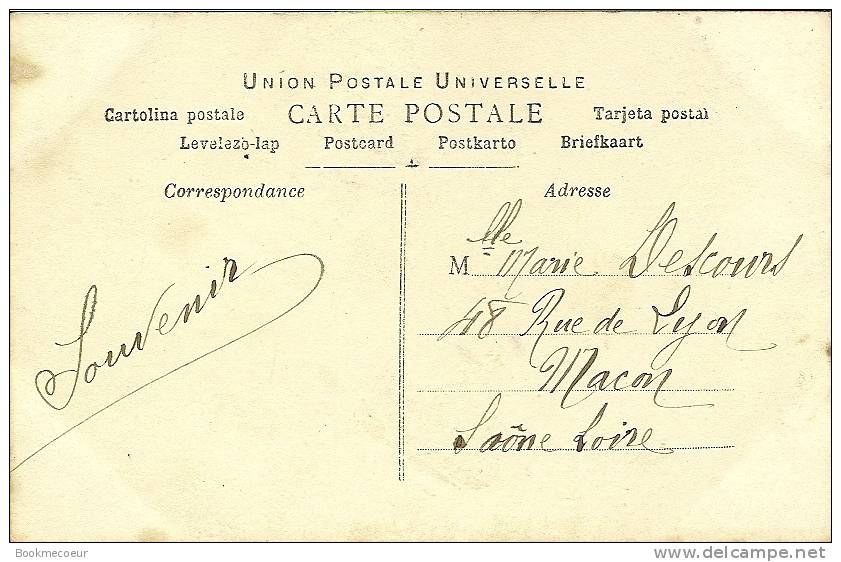 UNION POSTALE UNIVERSELLE
Cartolina postale CARTE POSTALE Tarjeta postal
Levelezò-lap Postcard Postkarto Briefkaart
Correspondance
Souvenir
Adresse
Mlle Marie Descours
48 Rue de Lyon
Macon
Saône Loire
Bookmecoeur
www.delcampe.net